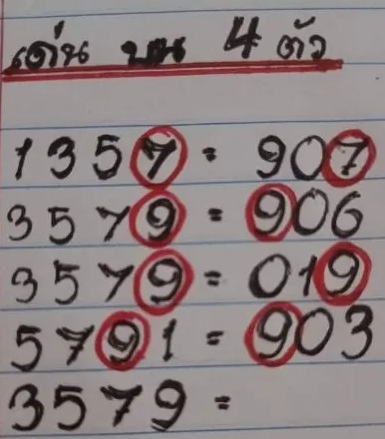 เด่น บน 4 ตัว
1357 = 907
3579 = 906
3579 = 019
5791 = 903
3579 =